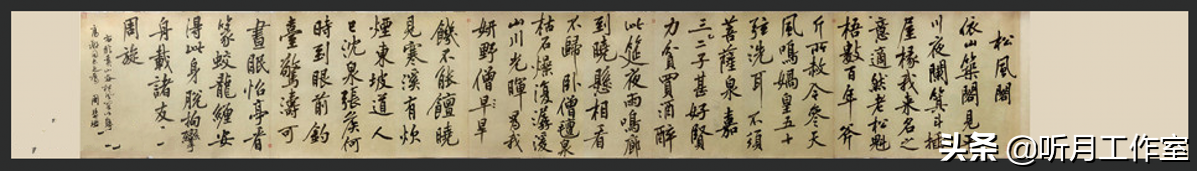 松風閣
依山築閣見
川夜闌箕斗插
屋椽我來名之
意適然老松魁
梧數百年斧
斤所赦今參天
風鳴媧皇五十
弦洗耳不須
菩薩泉嘉
三二子甚好賢
力貧買酒醉
此筵夜雨鳴廊
到曉懸相看
不歸臥僧氈泉
枯石燥復潺湲
山川光暉為我
妍野僧早旱
饑不能饘曉
見寒溪有炊
煙東坡道人
已沈泉張侯何
時到眼前釣
臺驚濤可
晝眠怡亭看
篆蛟龍纏安
得此身脫拘攣
舟載諸友
周旋
头条 @听月工作室